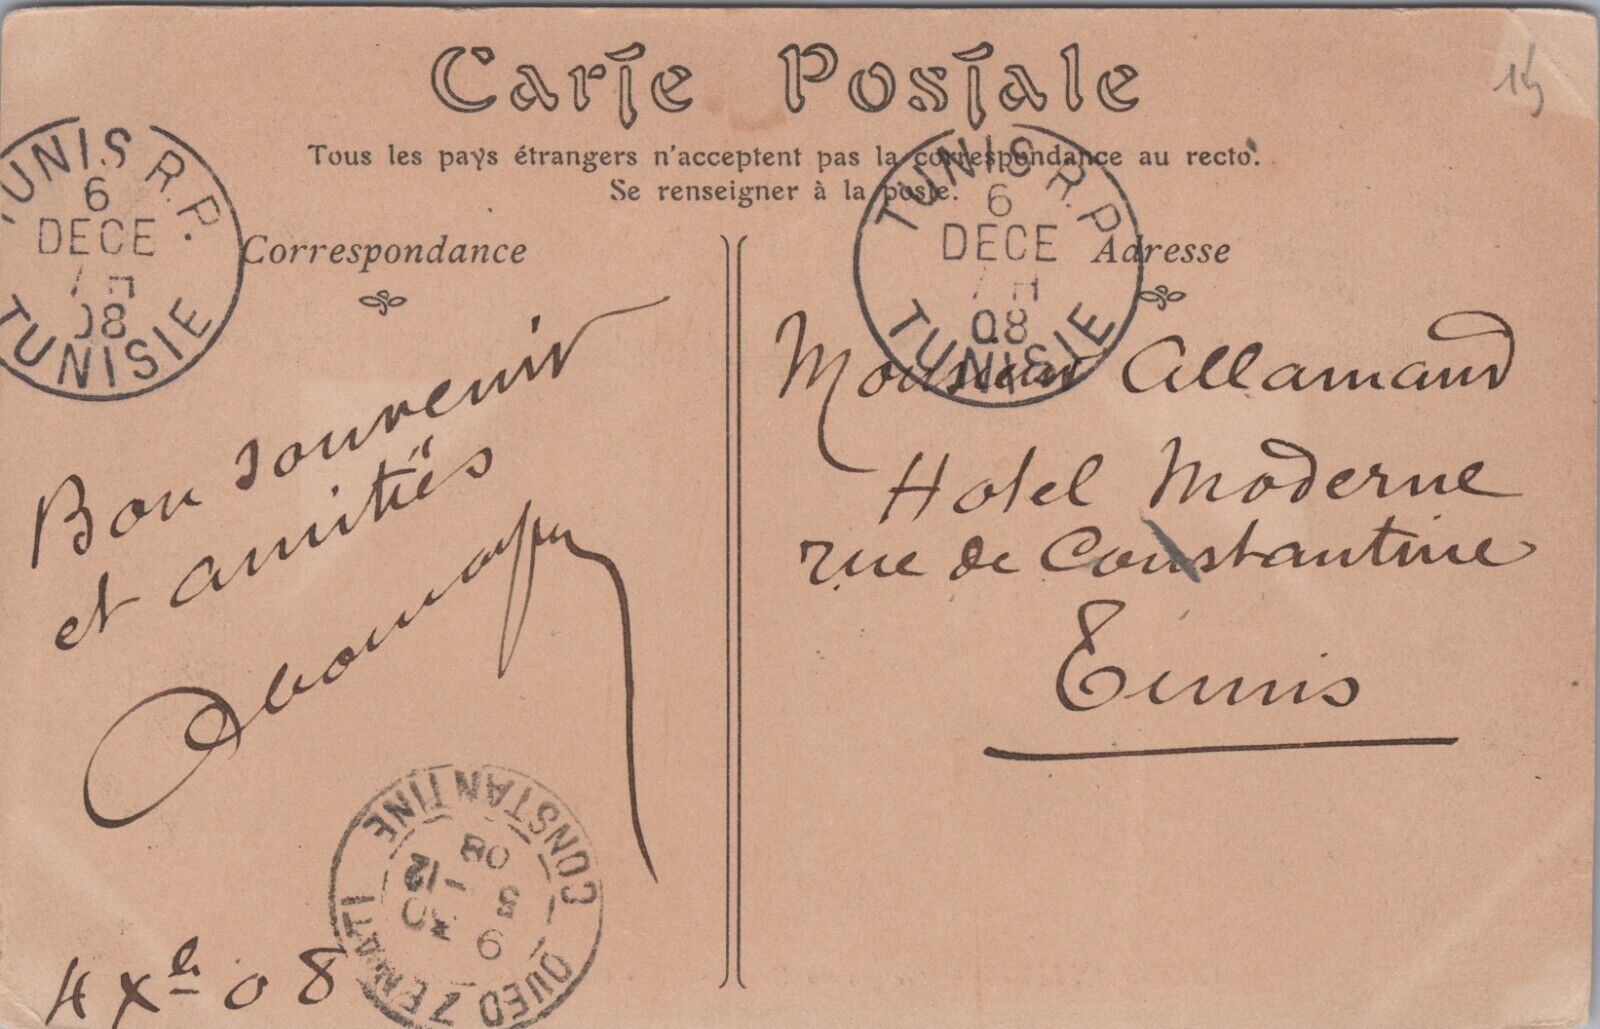 Carte Postale
Tous les pays étrangers n'acceptent pas la correspondance au recto.
Se renseigner à la poste.
TUNIS R.P.
6
DECE
7H
08
TUNISIE
TUNIS R.P.
6
DECE
7H
08
TUNISIE
Correspondance
Bon souvenir
et amitiés
4 Xbre 08
OUED ZENATI
CONSTANTINE
5
12
08
Adresse
Monsieur Allamand
Hotel Moderne
rue de Constantine
Tunis